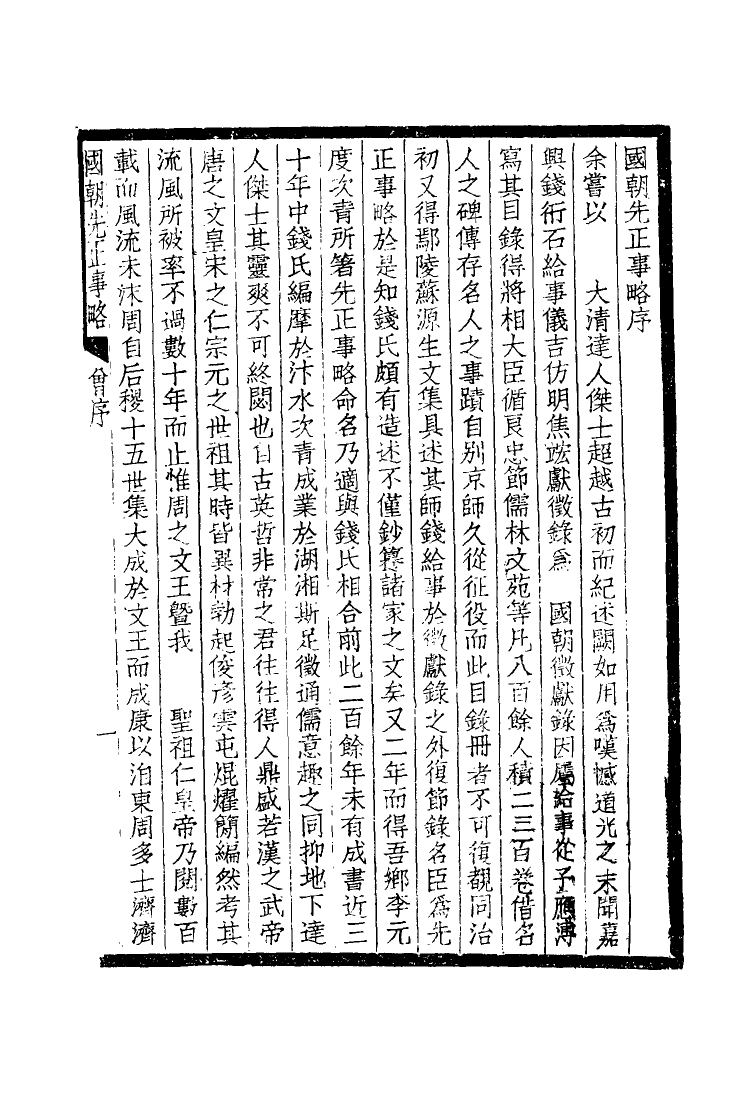 國朝先正事略序
余嘗以　大清達人傑士超越古初而紀述闕如用爲嘆憾道光之末聞嘉
興錢衎石給事儀吉仿明焦竑獻徵錄爲　國朝徵獻錄因屬給事從子應溥
寫其目錄得將相大臣循良忠節儒林文苑等凡八百餘人積二三百卷借名
人之碑傳存名人之事蹟自別京師久從征役而此目錄冊者不可復覩同治
初又得鄢陵蘇源生文集具述其師錢給事於徵獻錄之外復節錄名臣爲先
正事略於是知錢氏頗有造述不僅鈔篹諸家之文矣又二年而得吾鄉李元
度次青所箸先正事略命名乃適與錢氏相合前此二百餘年未有成書近三
十年中錢氏編摩於汴水次青成業於湖湘斯足徵通儒意趣之同抑地下達
人傑士其靈爽不可終閟也自古英哲非常之君往往得人鼎盛若漢之武帝
唐之文皇宋之仁宗元之世祖其時皆異材勃起俊彥雲屯焜燿簡編然考其
流風所被率不過數十年而止惟周之文王曁我　聖祖仁皇帝乃閱數百
載而風流未沫周自后稷十五世集大成於文王而成康以洎東周多士濟濟
國朝先正事略　曾序　一